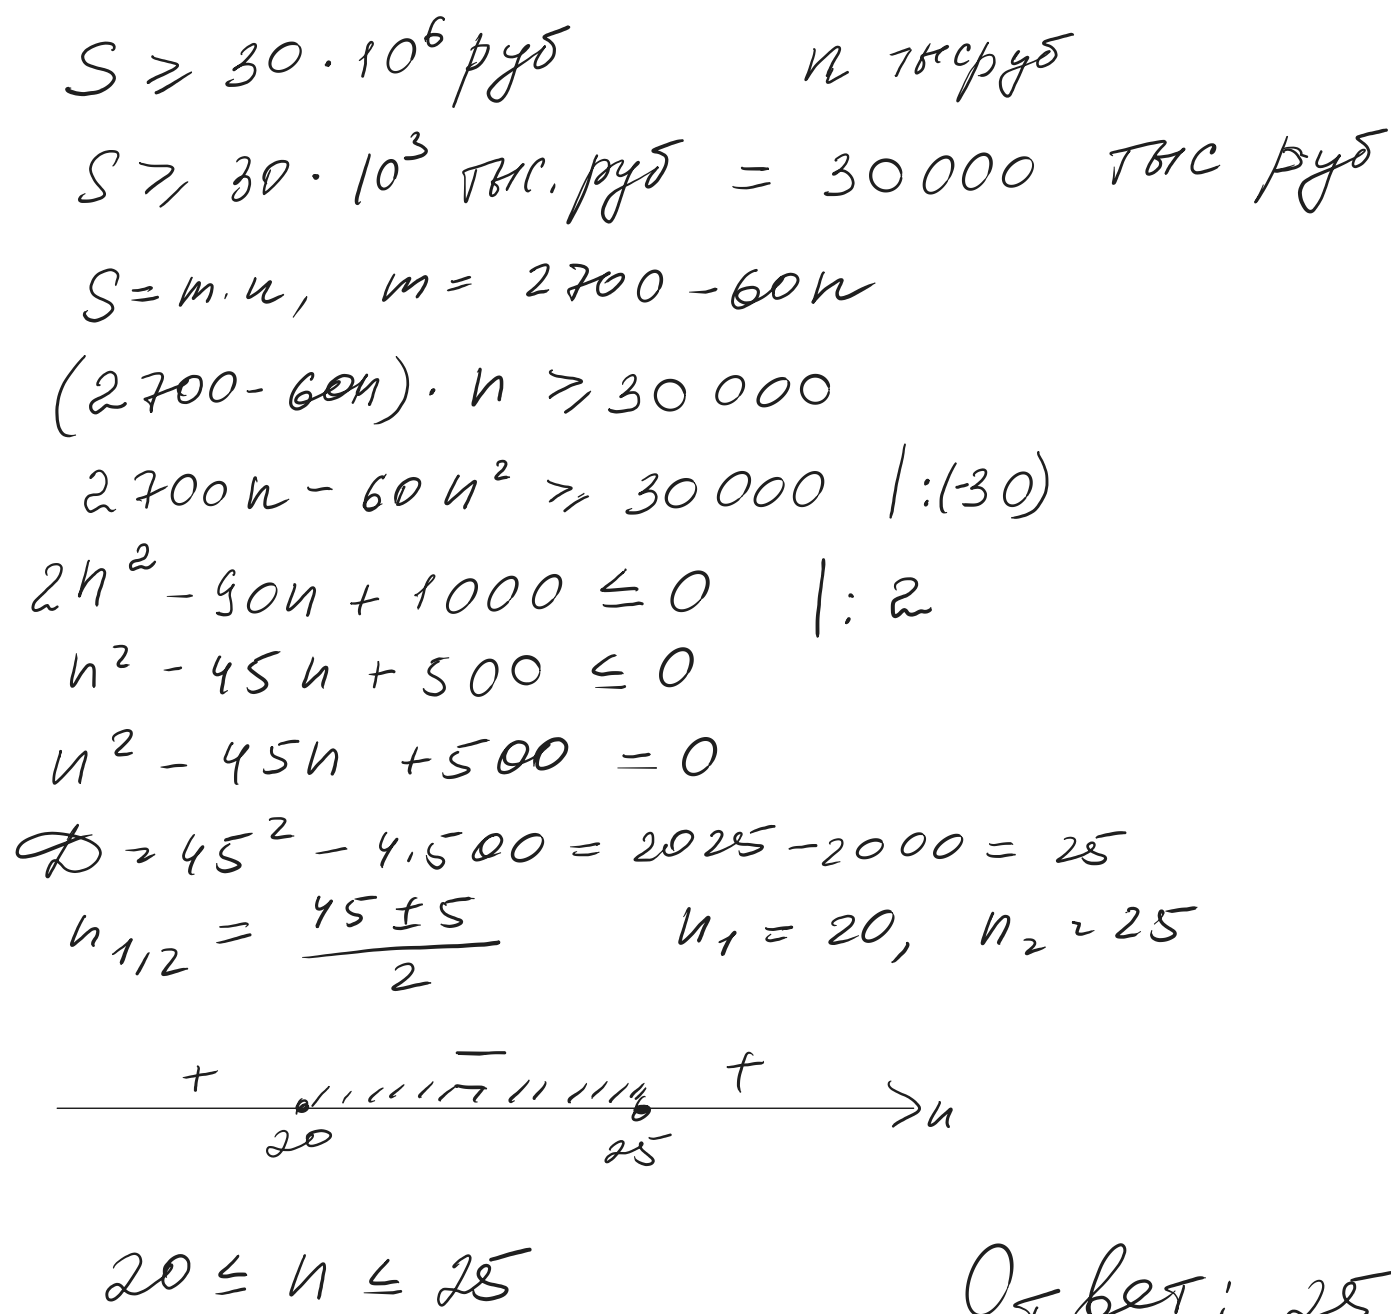 S ≥ 30 · 10⁶ руб n тыс руб
S ≥ 30 · 10³ тыс. руб = 30 000 тыс руб
S = m · n, m = 2700 - 60n
(2700 - 60n) · n ≥ 30 000
2700n - 60n² ≥ 30 000 | :(-30)
2n² - 90n + 1000 ≤ 0 | : 2
n² - 45n + 500 ≤ 0
n² - 45n + 500 = 0
D = 45² - 4·500 = 2025 - 2000 = 25
n₁,₂ = (45 ± 5)/2 n₁ = 20, n₂ = 25
+ − +
20 25 n
20 ≤ n ≤ 25 Ответ: 25